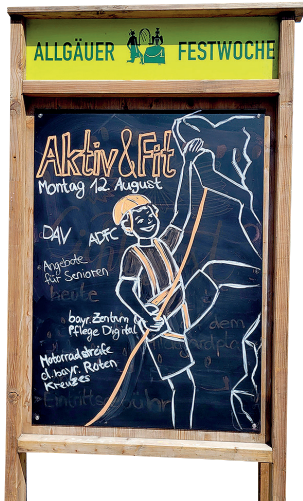 ALLGÄUER FESTWOCHE
Aktiv & Fit
Montag 12. August
DAV ADFC
Angebote
für Senioren
heute
bayr. Zentrum
Pflege Digital
dem
Motorradstreife
d. bayr. Roten
Kreuzes